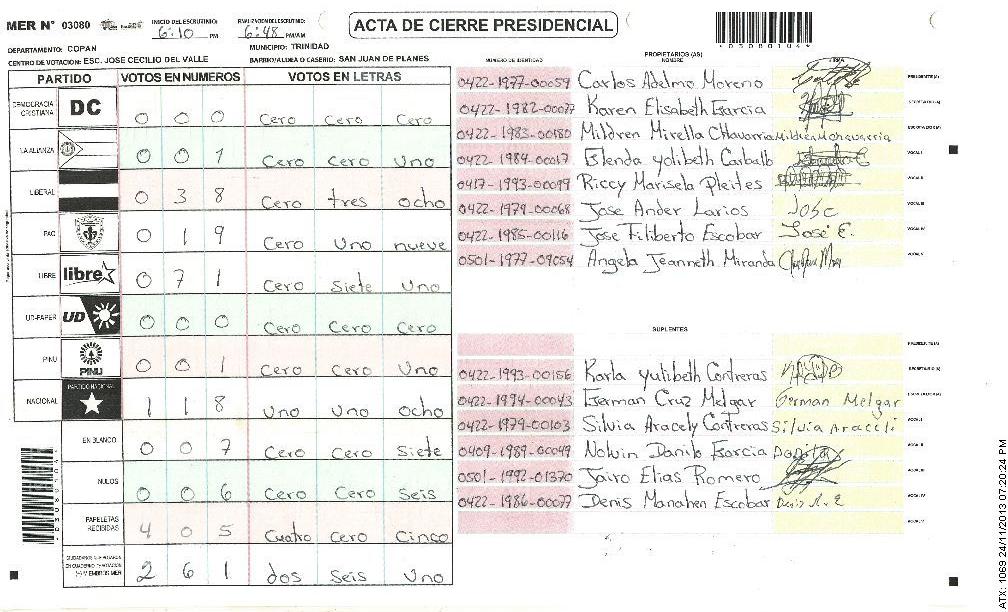 MER N° 03080
INICIO DEL ESCRUTINIO:
6:10 PM
FINALIZACION ESCRUTINIO:
6:48 PM/AM
ACTA DE CIERRE PRESIDENCIAL
*03080104*
DEPARTAMENTO: COPAN
MUNICIPIO: TRINIDAD
CENTRO DE VOTACION: ESC. JOSE CECILIO DEL VALLE
BARRIO/ALDEA O CASERIO: SAN JUAN DE PLANES
PARTIDO VOTOS EN NUMEROS VOTOS EN LETRAS
DEMOCRACIA CRISTIANA DC 0 0 0 Cero Cero Cero
LA ALIANZA 0 0 1 Cero Cero Uno
LIBERAL 0 3 8 Cero tres ocho
PAC 0 1 9 Cero Uno nueve
LIBRE libre 0 7 1 Cero Siete Uno
UD-FAPER UD 0 0 0 Cero Cero Cero
PINU PINU 0 0 1 Cero Cero Uno
NACIONAL PARTIDO NACIONAL 1 1 8 Uno Uno Ocho
EN BLANCO 0 0 7 Cero Cero Siete
NULOS 0 0 6 Cero Cero Seis
PAPELETAS RECIBIDAS 4 0 5 Cuatro Cero Cinco
CIUDADANOS QUE VOTARON EN CUADERNO DE VOTACION (+) MIEMBROS MER 2 6 1 dos Seis Uno
NUMERO DE IDENTIDAD
PROPIETARIOS (AS)
NOMBRE
FIRMA
0422-1977-00059 Carlos Adelmo Moreno PRESIDENTE (A)
0422-1982-00077 Karen Elisabeth Garcia SECRETARIO (A)
0422-1983-00180 Mildren Mirella Chavarria Mildren M Chavarria ESCRUTADOR (A)
0422-1984-00017 Glenda yolibeth Carballo VOCAL I
0417-1993-00099 Riccy Marisela Pleites VOCAL II
0422-1979-00068 Jose Ander Larios Jose VOCAL III
0422-1985-00116 Jose Filiberto Escobar José E. VOCAL IV
0501-1977-09054 Angela Jeanneth Miranda VOCAL V
SUPLENTES
PRESIDENTE (A)
0422-1993-00156 Karla yulibeth Contreras SECRETARIO (A)
0422-1994-00043 German Cruz Melgar German Melgar ESCRUTADOR (A)
0422-1979-00103 Silvia Aracely Contreras Silvia Araceli VOCAL I
0409-1989-00099 Nolvin Danilo Garcia Danilo VOCAL II
0501-1992-01370 Jairo Elias Romero VOCAL III
0422-1986-00077 Denis Manahen Escobar Denis M. E VOCAL IV
VOCAL V
ATX: 1069 24/11/2013 07:20:24 PM